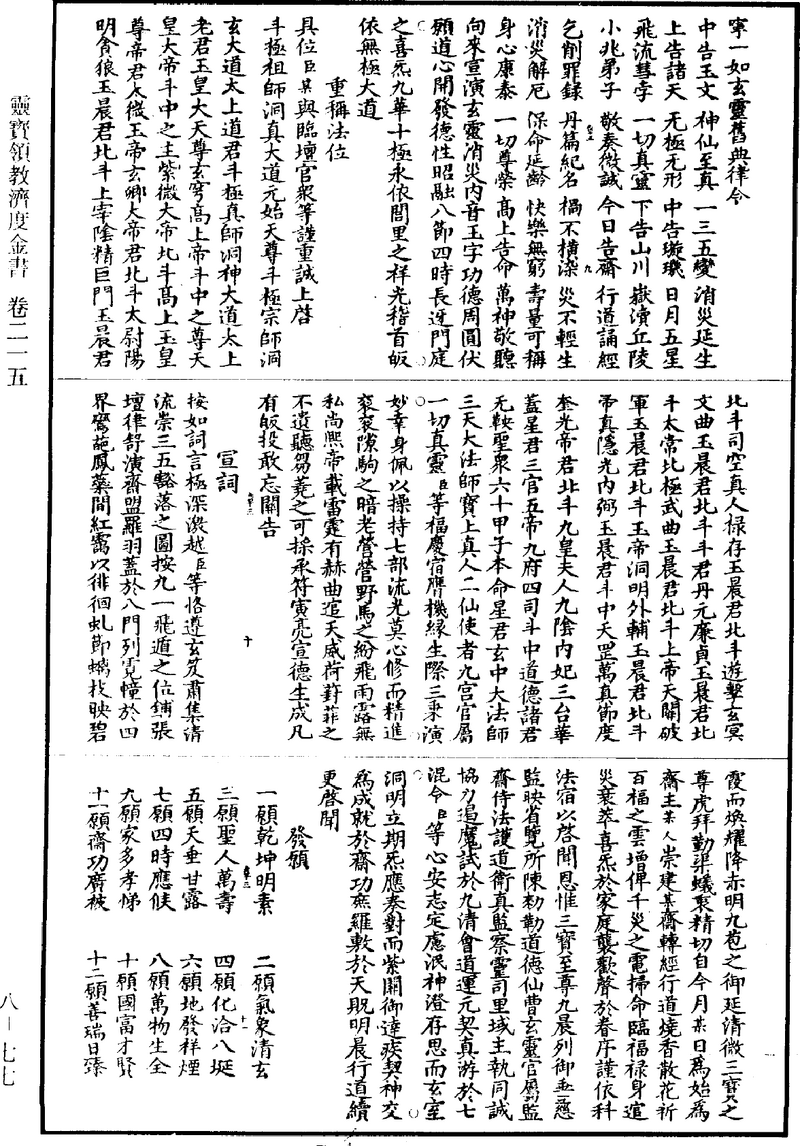 寧一如玄靈舊典律令
中告玉文　神仙至真　一三五變　消災延生
上告諸天　无極无形　中告璇璣　日月五星
飛流彗孛　一切真靈　下告山川　嶽瀆丘陵
小兆弟子　敬奏微誠　今日告齋　行道誦經
乞削罪錄　丹篇紀名　禍不橫染　災不輕生
消災解厄　保命延齡　快樂無窮　壽量可稱
身心康泰　一切尊榮　高上告命　萬神敬聽
向來宣演玄靈消災內音玉字功德周圓伏
願道心開發德性昭融八節四時長迓門庭
之喜炁九華十極永依閭里之祥光稽首皈
依無極大道
重稱法位
具位臣某與臨壇官眾等謹重誠上啓
斗極祖師洞真大道元始天尊斗極宗師洞
玄大道太上道君斗極真師洞神大道太上
老君玉皇大天尊玄穹高上帝斗中之尊天
皇大帝斗中之主紫微大帝北斗高上玉皇
尊帝君太微玉帝玄卿大帝君北斗太尉陽
明貪狼玉晨君北斗上宰陰精巨門玉晨君
北斗司空真人祿存玉晨君北斗遊擊玄冥
文曲玉晨君北斗斗君丹元廉貞玉晨君北
斗太常北極武曲玉晨君北斗上帝天關破
軍玉晨君北斗玉帝洞明外輔玉晨君北斗
帝真隱光內弼玉晨君斗中天罡萬真節度
奎光帝君北斗九皇夫人九陰內妃三台華
蓋星君三官五帝九府四司斗中道德諸君
无鞅聖眾六十甲子本命星君玄中大法師
三天大法師寶上真人二仙使者九宮官屬
一切真靈臣等福慶宿膺機緣生際三乘演
妙幸身佩以操持七部流光莫心修而精進
袞袞隙駒之暗老營營野馬之紛飛雨露無
私尚熙帝載雷霆有赫曲逭天威荷葑菲之
不遺聽芻蕘之可採承符寅亮宣德生成凡
有皈投敢忘關告
宣詞
按如詞言極深激越臣等恪遵玄笈肅集清
流崇三五豁落之圖按九一飛遁之位鋪張
壇律舒演齋盟羅羽蓋於八門列霓幢於四
界鸞葩鳳藥間紅靄以徘徊虬節螭枝映碧
霞而煥耀降赤明九苞之御延清微三寶之
尊虎拜勤渠蟻裹精切自今月某日為始為
齋主某人崇建某齋轉經行道燒香散花祈
百福之雲增俾千災之電掃命臨福祿身逭
災衰萃喜炁於家庭襲歡聲於眷序謹依科
法宿以啓聞恩惟三寶至尊九晨列御垂慈
監映省覽所陳勑勒道德仙曹玄靈官屬監
齋侍法護道衛真監察靈司里域主執同誠
協力遏魔試於九清會道運元契真游於七
混令臣等心安志定慮泯神澄存思而玄室
洞明立期炁應奏對而紫闕御達疾契神交
為成就於齋功庶羅敷於天貺明晨行道續
更啓聞
發願
一願乾坤明素　二願氣象清玄
三願聖人萬壽　四願化洽八埏
五願天垂甘露　六願地發祥煙
七願四時應候　八願萬物生全
九願家多孝悌　十願國富才賢
十一願齋功廣被　十二願善瑞日臻
靈寶領教濟度金書　卷二一五
八－七七